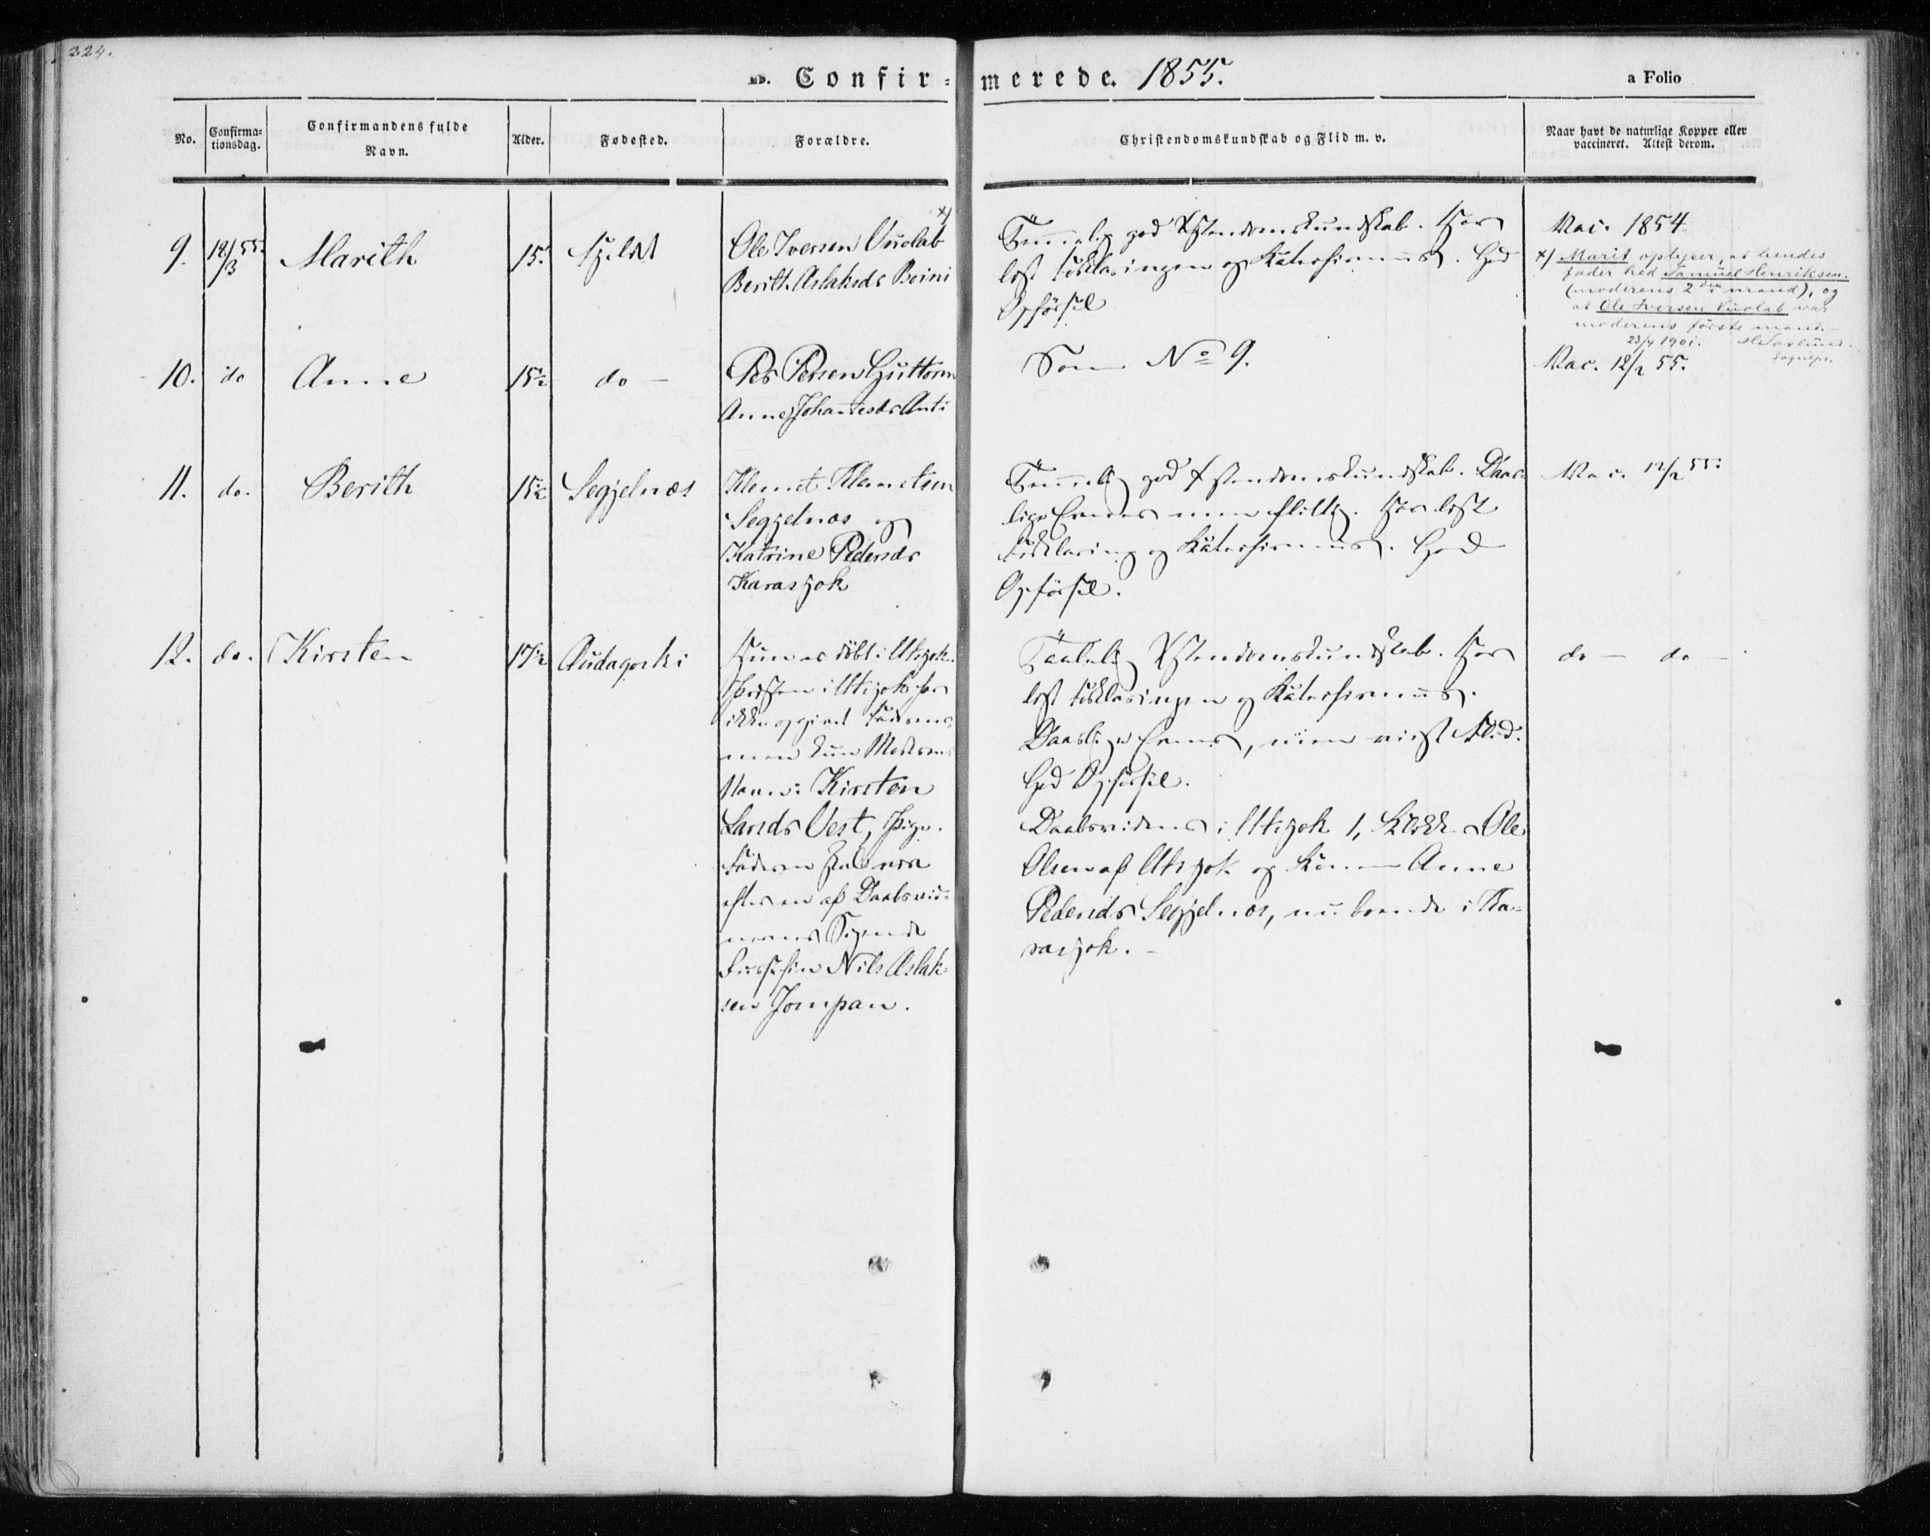 324.
Confirmerede. 1855.
a Folio
No.
Confirmationsdag.
Confirmandens fulde Navn.
Alder.
Fødested.
Forældre.
Christendomskundskab og Flid m. v.
Naar havt de naturlige Kopper eller
vaccineret. Attest derom.
9. 18/3 55. Marith 15.
Ole Iversen Vuolab x)
Berith Aslaksdr Boini
god Xstendomskundskab. Har
læst Forklaringen og Katechismus. God
Opførsel
Vac. 1854
x) Marit oplyser, at hendes
fader hed Samuel Henriksen.
(moderens 2den mand), og
at Ole Iversen Vuolab var
moderens første mand.
23/4 1901.
Sognepr.
10. do Anne 15½ do —
Per Persen Guttorm
Anne Johannesdr Anti
Som No 9.
Vac. 12/2 55.
11. do. Berith 15½ Segjelnæs
Klemet Klemetsen
Segjelnæs og
Katrine Pedersdr
Karasjok
Temmelig god Xstendomskundskab. Daar-
lige Evner men flittig. Har læst
Forklaring og Katechismus. God
Opførsel.
Vac. 12/2 55.
12. do. Kirsten 17½ Audagoski
Hun er døbt i Utsjok.
Præsten i Utsjok har
ikke opgivet Faderens,
men kun Moderens
Navn: Kirsten
Larsdr Vest, Pige.
Faderen skal være
efter en af Daabsvid-
nernes Sigende
Nils Aslak-
sen Jompan.
Taalelig Xstendomskundskab. Har
læst Forklaringen og Katechismus.
Daarlige Evner, men Flid.
God Opførsel.
Daabsvidner i Utsjok 1, Klokker Ole
Olsen af Utsjok og Kone Anne
Pedersdr Segjelnæs, nu boende i Ka-
rasjok. —
do — do —